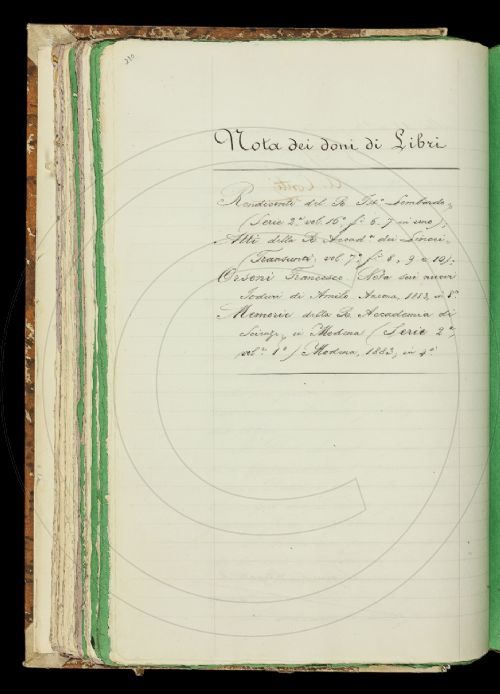 230
Nota dei doni di Libri
Rendiconti del R. Ist.o Lombardo,
(Serie 2.a vol. 16.o f.i 6. 7 in uno);
Atti della R. Accad.a dei Lincei
(Transunti, vol. 7.o f.i 8, 9 e 10);
Orsoni Francesco (Nota sui nuovi
Joduri di Amilo. Ancona, 1883, in 8.o
Memorie della R. Accademia di
Scienze, in Modena (Serie 2.a,
vol. 1.o) Modena, 1883, in 4.o